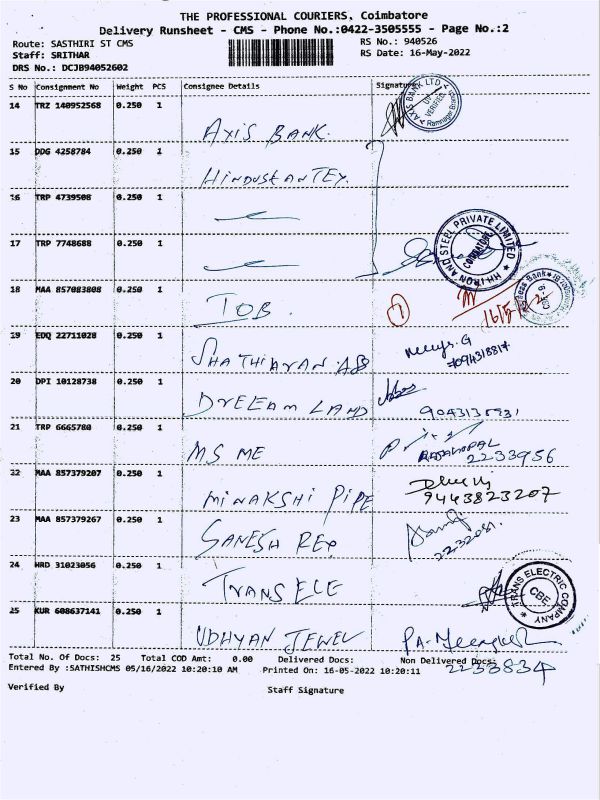 THE PROFESSIONAL COURIERS, Coimbatore
Delivery Runsheet - CMS - Phone No.:0422-3505555 - Page No.:2
Route: SASTHIRI ST CMS RS No.: 940526
Staff: SRITHAR RS Date: 16-May-2022
DRS No.: DCJB94052602
S No Consignment No Weight PCS Consignee Details Signature
14 TRZ 140952568 0.250 1 AXIS BANK. AXIS BANK LTD VERIFIED
15 DDG 4258784 0.250 1 HINDUSTAN TEX.
16 TRP 4739508 0.250 1
17 TRP 7748688 0.250 1 IRON AND STEEL PRIVATE LIMITED COIMBATORE
18 MAA 857083808 0.250 1 IOB. 1 16/5/22
19 EDQ 22711028 0.250 1 SHATHIAYAN
20 DPI 10128738 0.250 1 DREEAM LAND
21 TRP 6665780 0.250 1 MS ME RAJAGOPAL 2233956
22 MAA 857379207 0.250 1 MINAKSHI PIPE 9443823207
23 MAA 857379267 0.250 1 GANESH REP 2232081.
24 HRD 31023056 0.250 1 TRANS ELE TRANS ELECTRIC COMPANY CBE
25 KUR 608637141 0.250 1 UDHYAN JEWEL
Total No. Of Docs: 25 Total COD Amt: 0.00 Delivered Docs: Non Delivered Docs: 2233834
Entered By :SATHISHCMS 05/16/2022 10:20:10 AM Printed On: 16-05-2022 10:20:11
Verified By Staff Signature